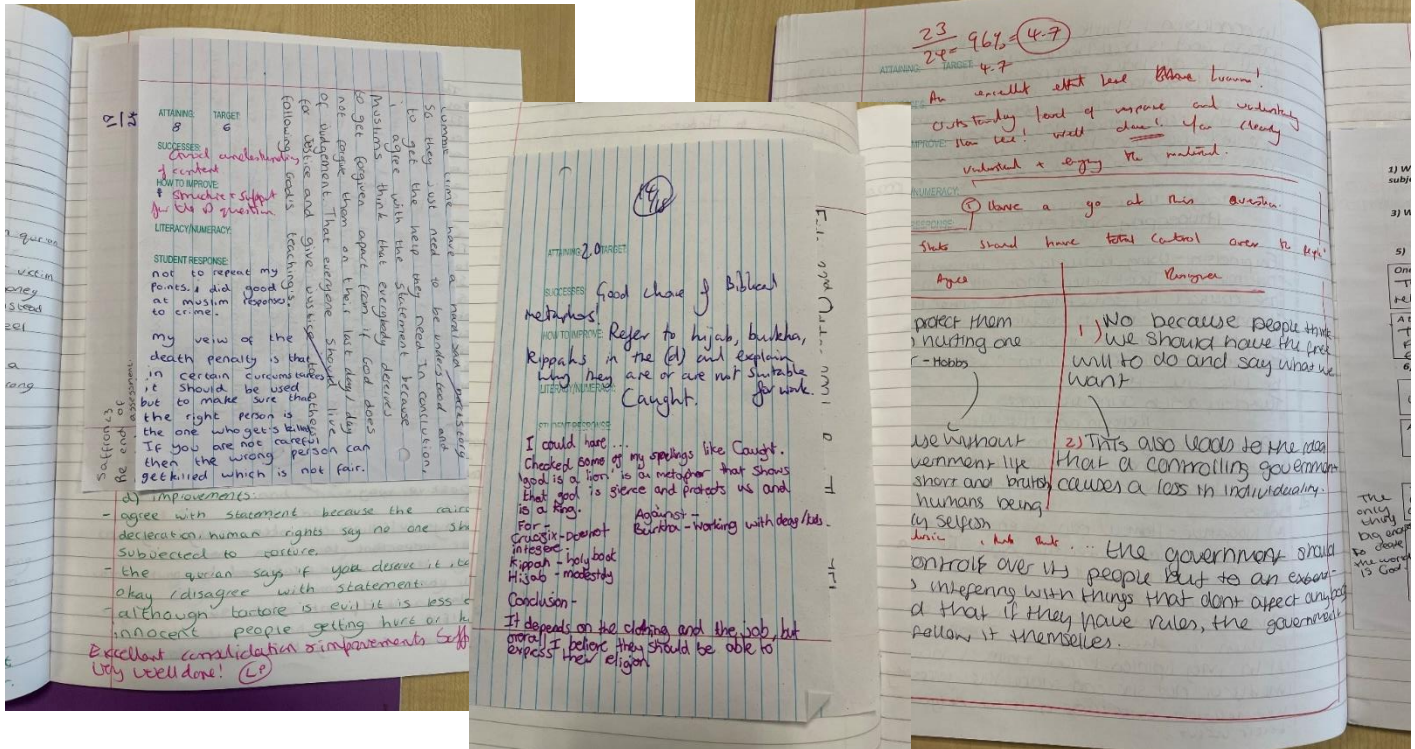 12/24
ATTAINING: TARGET:
8 6
SUCCESSES:
Good understanding
of content
HOW TO IMPROVE:
structure + support
for the D question
LITERACY/NUMERACY:
STUDENT RESPONSE:
not to repeat my
points. i did good
at muslim response
to crime.
my veiw of the
death penalty is that
in certain curcumstances
it should be used
but to make sure that
the right person is
the one who get's killed.
If you are not careful
then the wrong person can
get killed which is not fair.
commit crime have a hard/sad backstory
So they just need to be understood and
to get the help they need. In conclution,
i agree with the statement because
Muslims think that everybody derives
to get forgiven apart from if God does
not forgive them on their last day/day
of Judgement. That everyone should live
for Justice and give Justice to others
following God's teachings.
Saffron
Re end of
assessment
d) improvements:
- agree with statement because the
decleration, human rights say no one
Subjected to torture.
- the qurian says if you deserve it,
okay / disagree with statement
- although tortore is evil it is less
innocent people getting hurt or
Excellent consolidation + improvements
Very well done! LP
ATTAINING: 2.0 TARGET:
SUCCESSES: Good choice of Biblical
metaphors!
HOW TO IMPROVE: Refer to hijab, burkha,
Kippahs in the (d) and explain
why they are or are not suitable
for work.
LITERACY/NUMERACY:
Caught.
STUDENT RESPONSE:
I could have...
Checked some of my spellings like Caught.
'god is a lion' is a metaphor that shows
that god is fierce and protects us and
is a king.
For - Against -
Crusifix - Doe not Burkha - Working with deag/kids.
intefere
Kippah - holy book
Hijab - modestdy
Conclusion -
It depends on the clothing and the job, but
overall I believe they should be able to
expess their eligion
23/24 = 96% = 4.7
ATTAINING: TARGET:
4.7
An excellent effort here
Outstanding level of response and understanding
IMPROVE: shown here! Well done! You clearly
understand + enjoy the material.
/NUMERACY:
Have a go at this question.
RESPONSE:
State should have total control over the people
Agree Disagree
protect them
hurting one
- Hobbs
use without
vernment life
short and brutish
humans being
ly selfish
1) No because people think
we should have the free
will to do and say what we
want
2) This also leads to the idea
that a controlling government
causes a loss in individuality.
... the government should
control over its people but to an extend
interfering with things that dont affect anybody
d that if they have rules, the government
follow it themselves.
1) W
subj
3) W
5)
The
only
thing
big enough
to create
the world
is God.